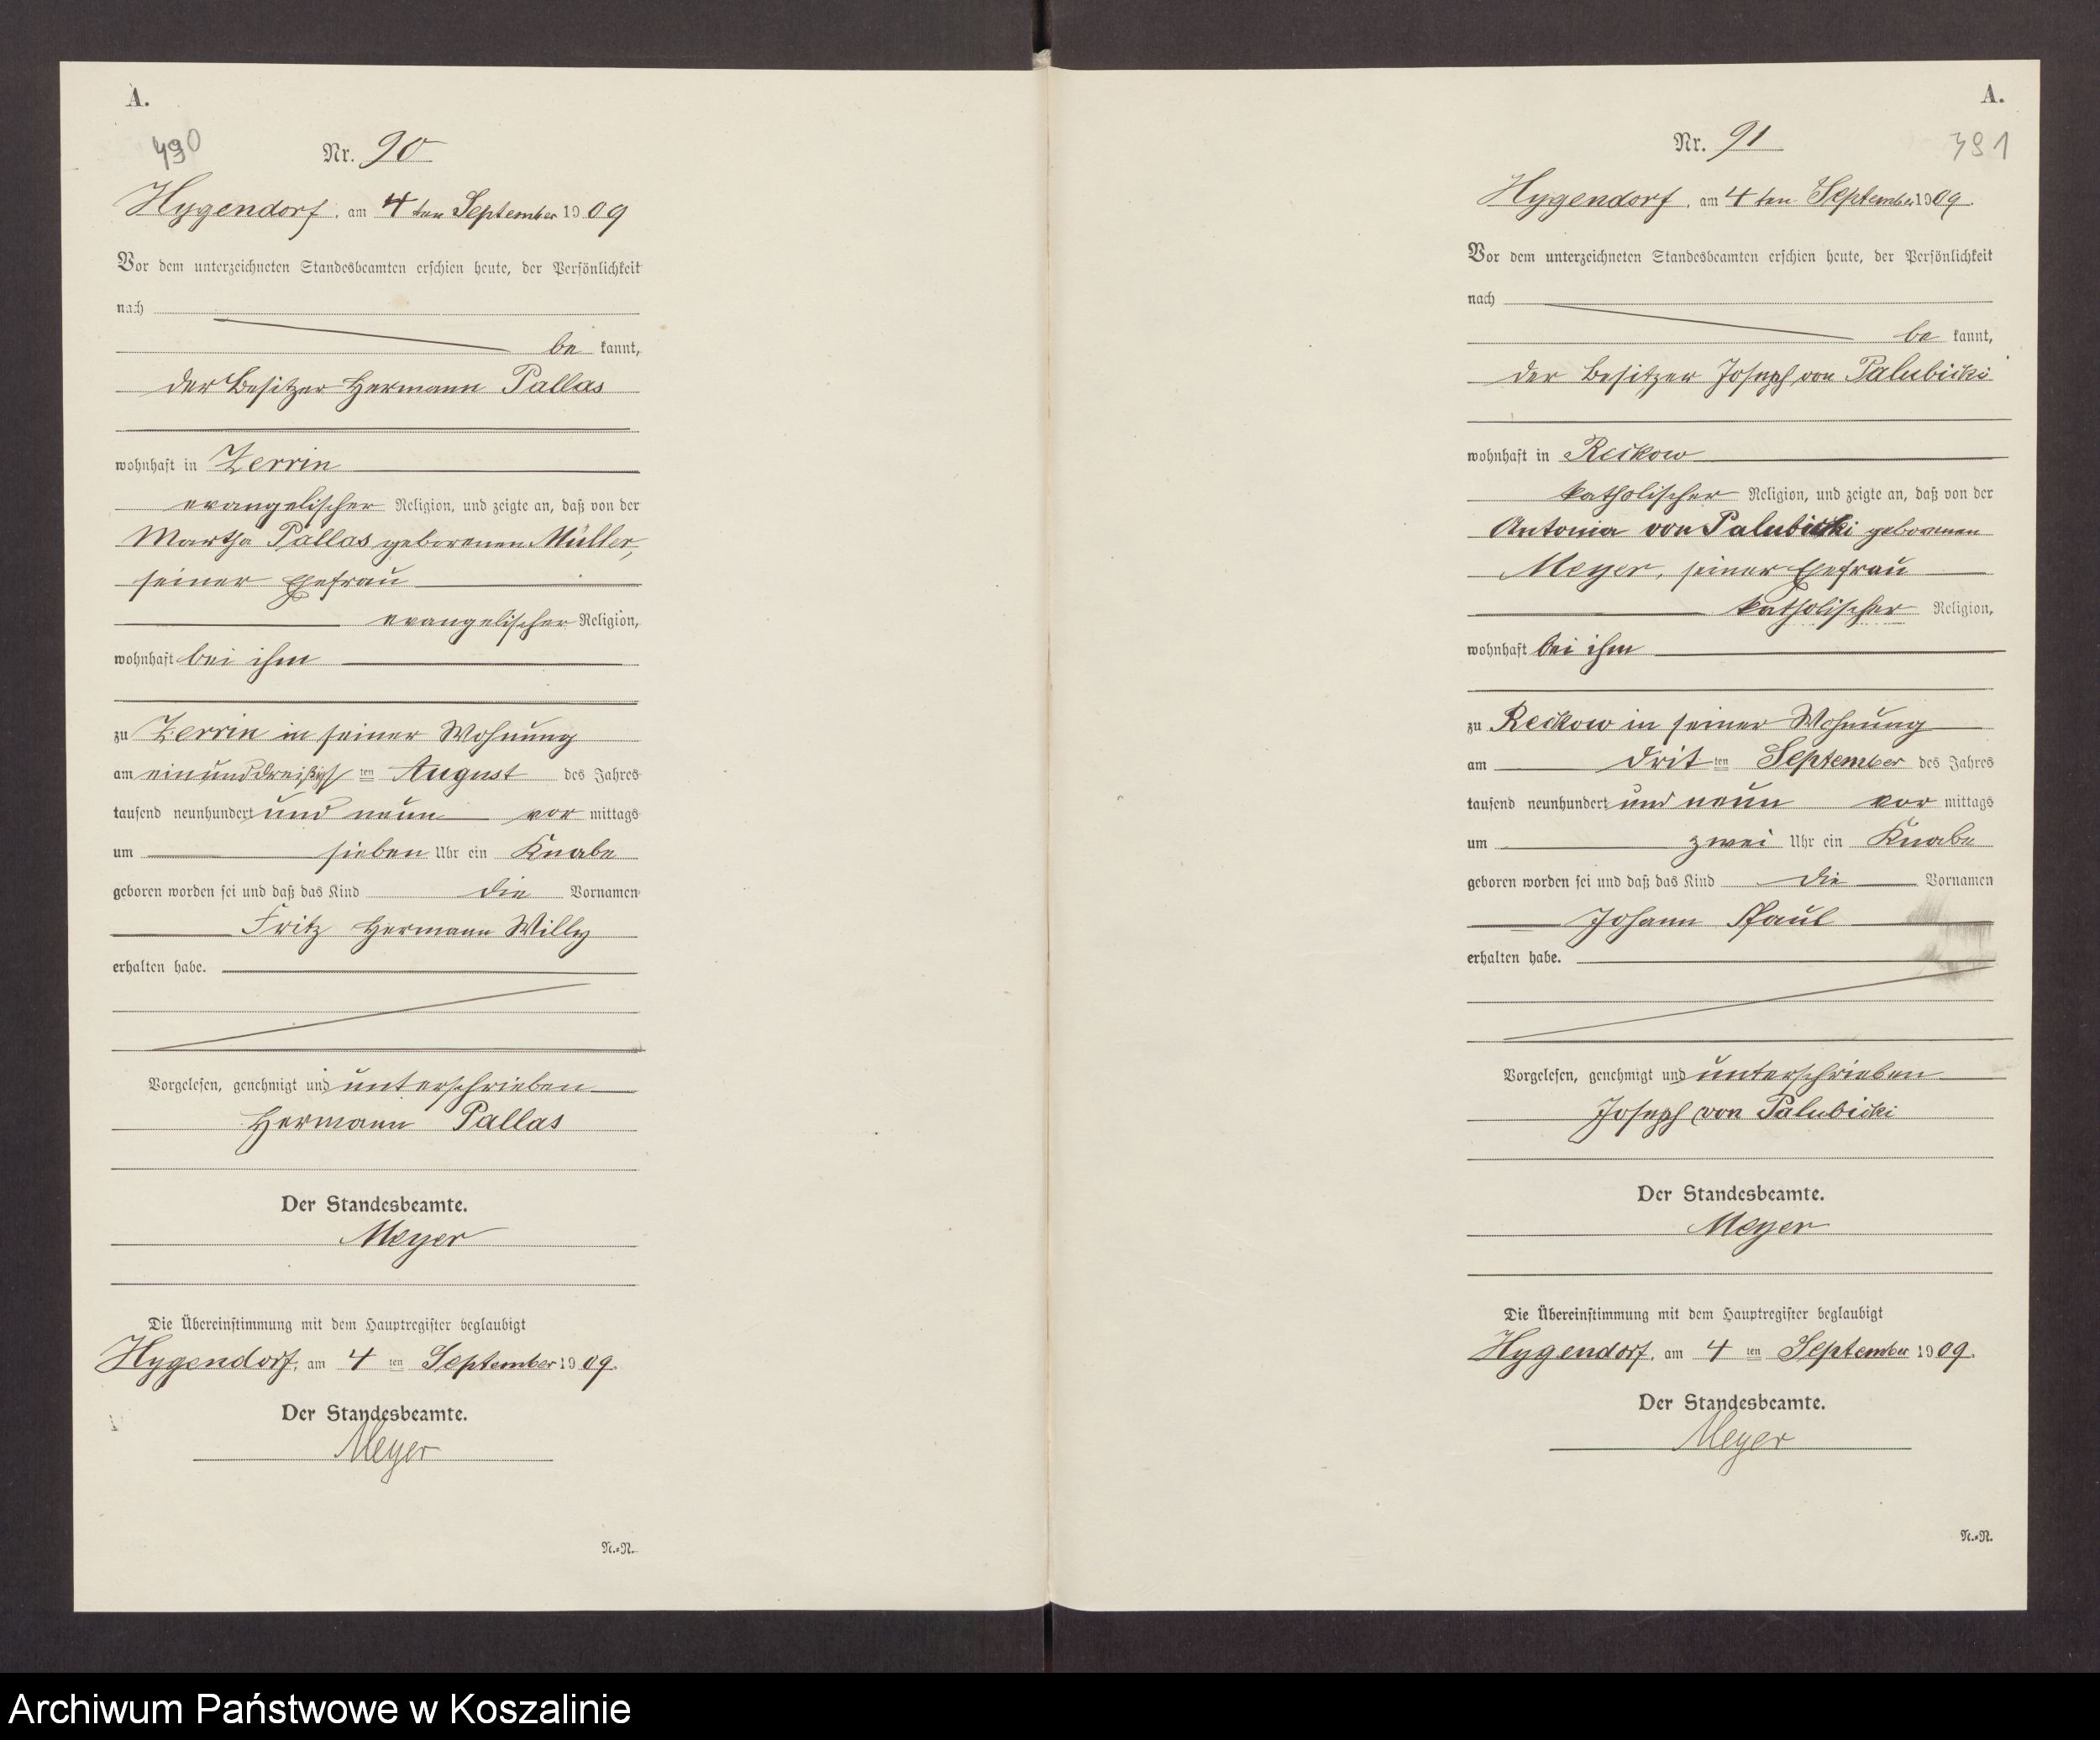 A.
490
Nr. 90
Hygendorf, am 4 ten September 1909
Vor dem unterzeichneten Standesbeamten erschien heute, der Persönlichkeit
nach
be kannt,
der Besitzer Hermann Pallas
wohnhaft in Zerrin
evangelischer Religion, und zeigte an, daß von der
Martha Pallas geborenen Müller,
seiner Ehefrau
evangelischer Religion,
wohnhaft bei ihm
zu Zerrin in seiner Wohnung
am einunddreißigs ten August des Jahres
tausend neunhundert und neun vor mittags
um sieben Uhr ein Knabe
geboren worden sei und daß das Kind die Vornamen
Fritz Hermann Willy
erhalten habe.
Vorgelesen, genehmigt und unterschrieben
Hermann Pallas
Der Standesbeamte.
Meyer
Die Übereinstimmung mit dem Hauptregister beglaubigt
Hygendorf, am 4 ten September 1909.
Der Standesbeamte.
Meyer
N.=N.
A.
Nr. 91
Hygendorf, am 4 ten September 1909.
Vor dem unterzeichneten Standesbeamten erschien heute, der Persönlichkeit
nach
be kannt,
der Besitzer Joseph von Palubicki
wohnhaft in Reckow
katholischer Religion, und zeigte an, daß von der
Antonia von Palubicki geborenen
Meyer, seiner Ehefrau
katholischer Religion,
wohnhaft bei ihm
zu Reckow in seiner Wohnung
am drit ten September des Jahres
tausend neunhundert und neun vor mittags
um zwei Uhr ein Knabe
geboren worden sei und daß das Kind die Vornamen
Johann Paul
erhalten habe.
Vorgelesen, genehmigt und unterschrieben
Joseph von Palubicki
Der Standesbeamte.
Meyer
Die Übereinstimmung mit dem Hauptregister beglaubigt
Hygendorf, am 4 ten September 1909.
Der Standesbeamte.
Meyer
N.=N.
Archiwum Państwowe w Koszalinie